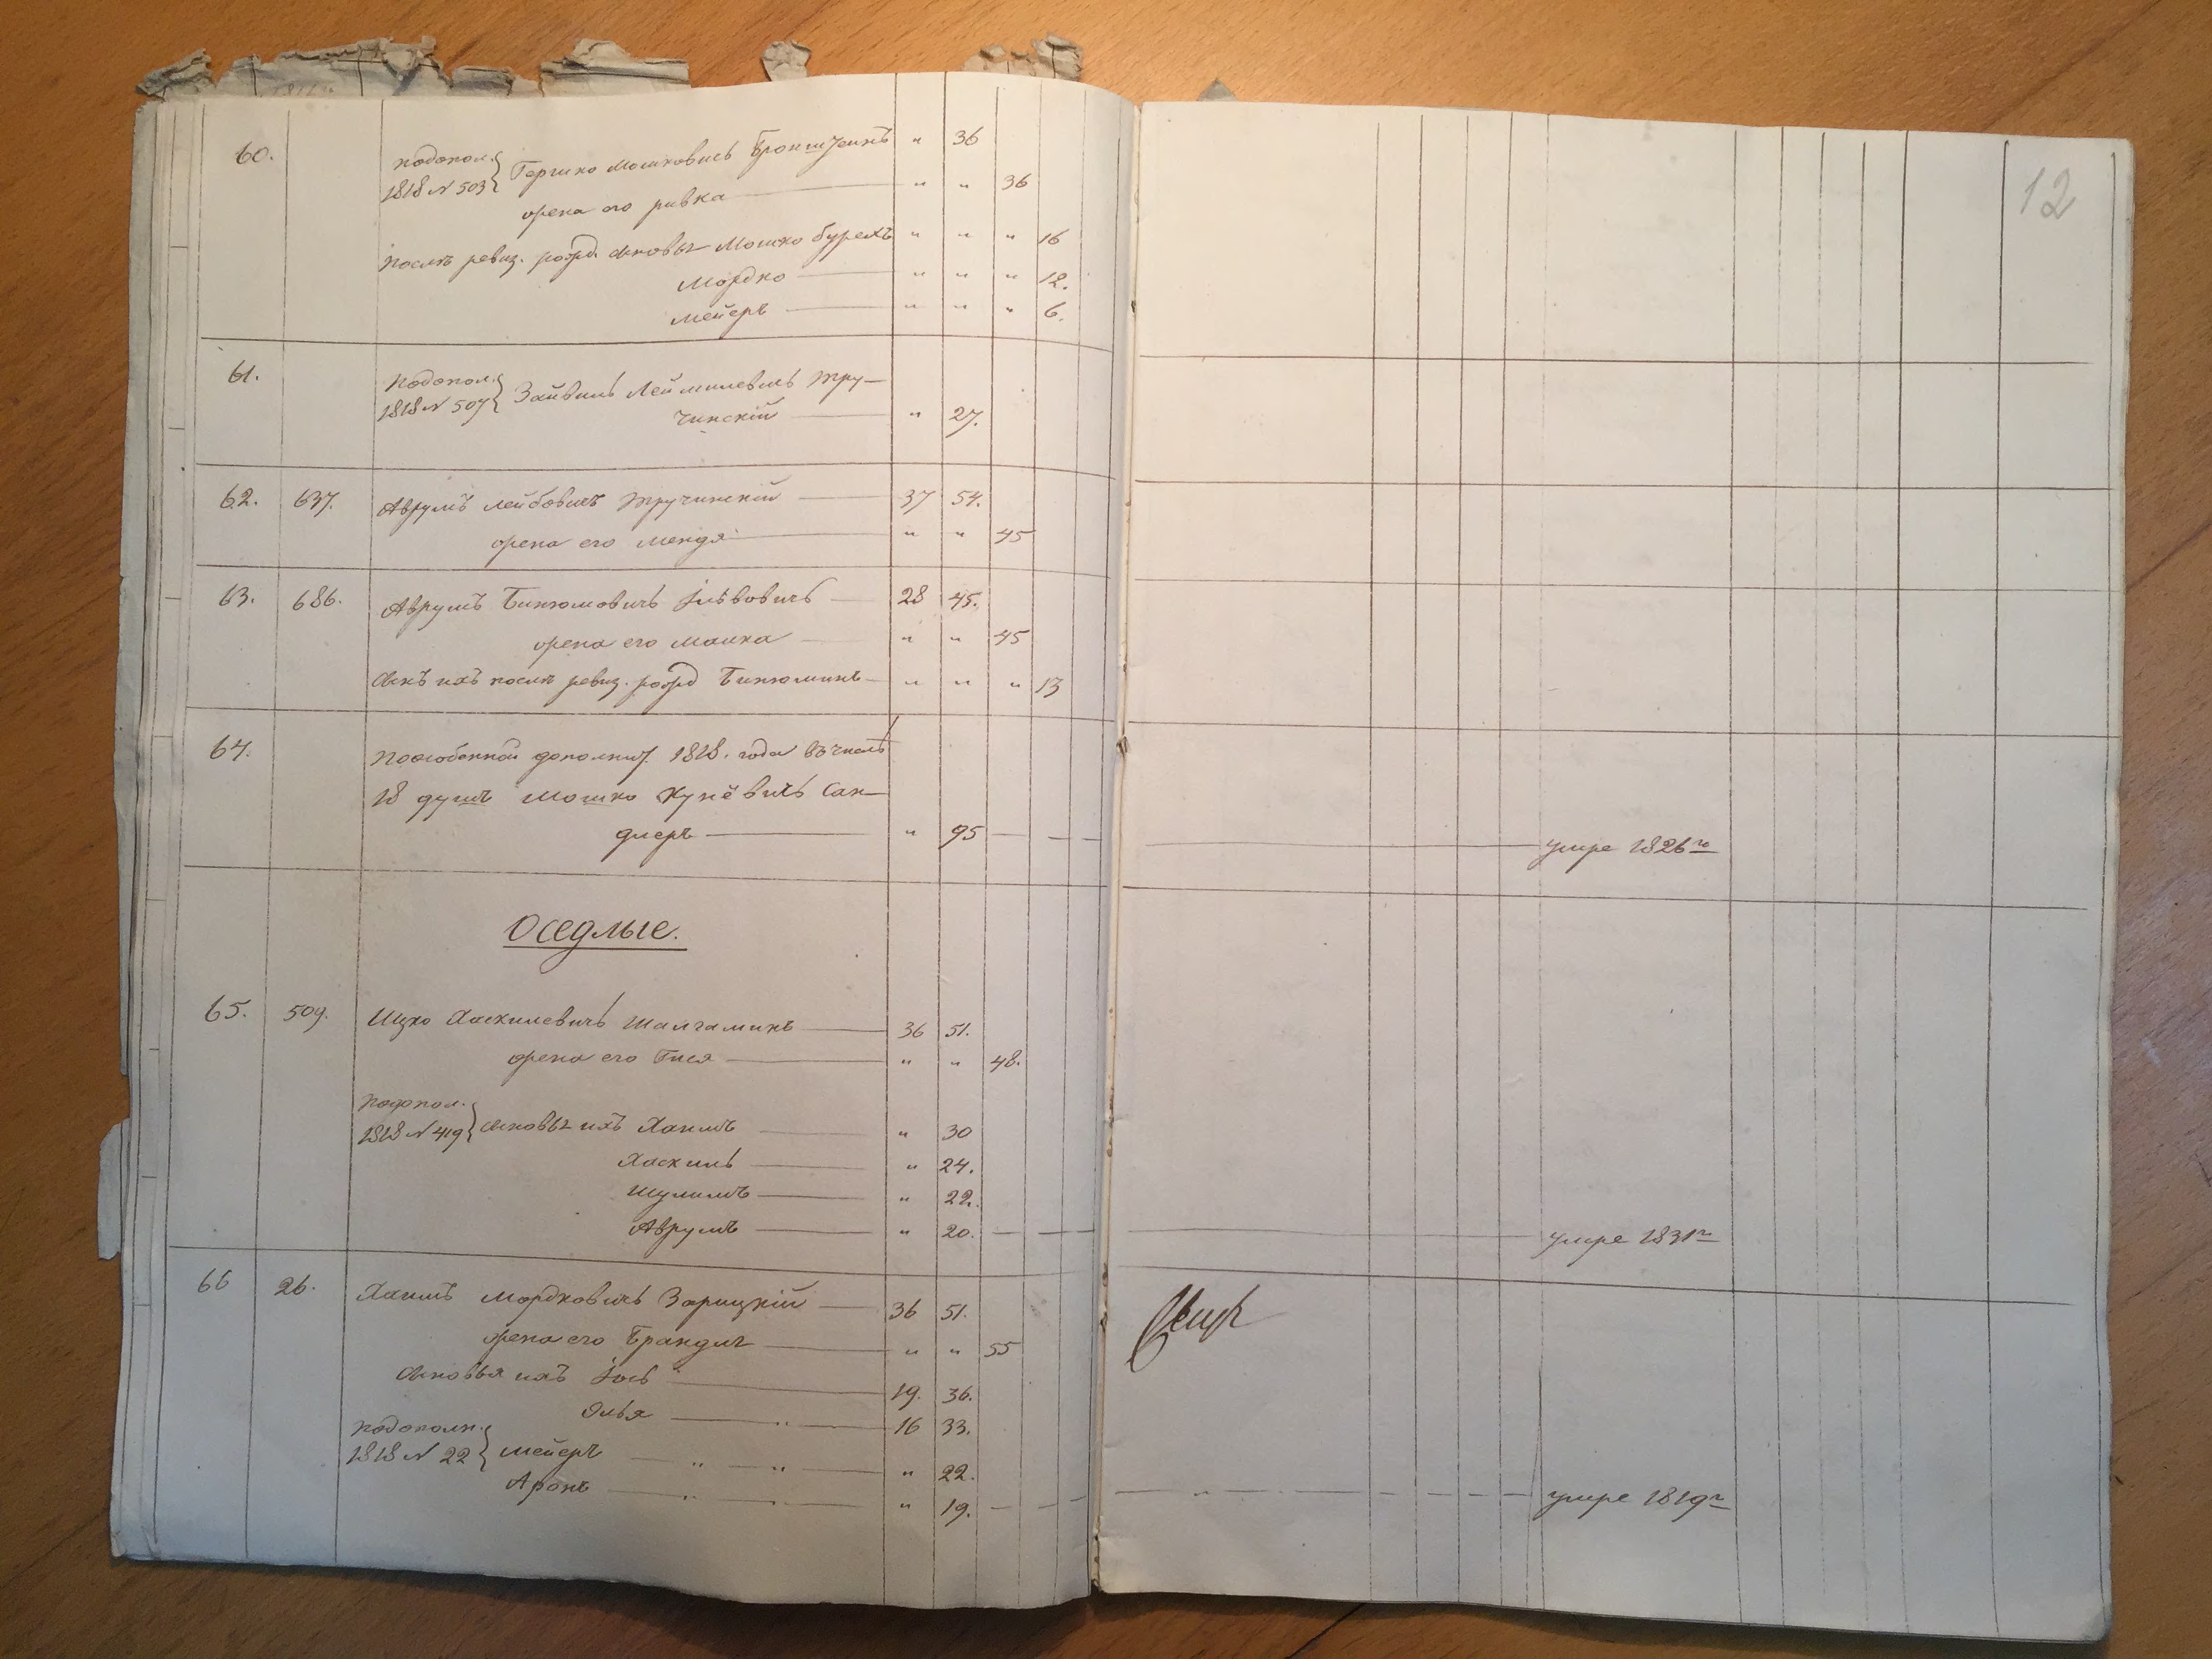 12
60. подопол. 1818 N 503 Гершко Мошковичь Бронштеинъ " 36
жена его Ривка " " 36
после ревиз. рожд. сыновья Мошко Бурехъ " " " 16
Мордко " " " 12.
Мейеръ " " " 6.
61. подопол. 1818 N 507 Зайвиль Лейзилевичь Тру-
чинскій " 27.
62. 637. Аврумъ Лейбовичъ Тручинскій 37 54.
жена его Мендя " " 45
63. 686. Аврумъ Бинюмовичь 28 45.
жена его Малка " " 45
Сынъ ихъ после ревиз. рожд Бинюминъ " " " 13
64. по особенной дополнит. 1818. года въ числе
18 душъ Мошко Кунёвичь Сан-
длеръ " 95 умре 1826го
Оседлые.
65. 509. Ицко Хаскилевичь Шалгаминъ 36 51.
жена его Гися " " 48.
подопол. 1818 N 419 сыновья ихъ Хаимъ " 30
Хаскиль " 24.
Шулимъ " 22.
Аврумъ " 20. умре 1831г
66 26. Хаимъ Мордковичь Зарицкій 36 51.
жена его Брандля " " 55
Сыновья ихъ Іось 19. 36.
Элья 16 33.
подополн. 1818 N 22 Мейеръ " 22.
Аронъ " 19. умре 1819г